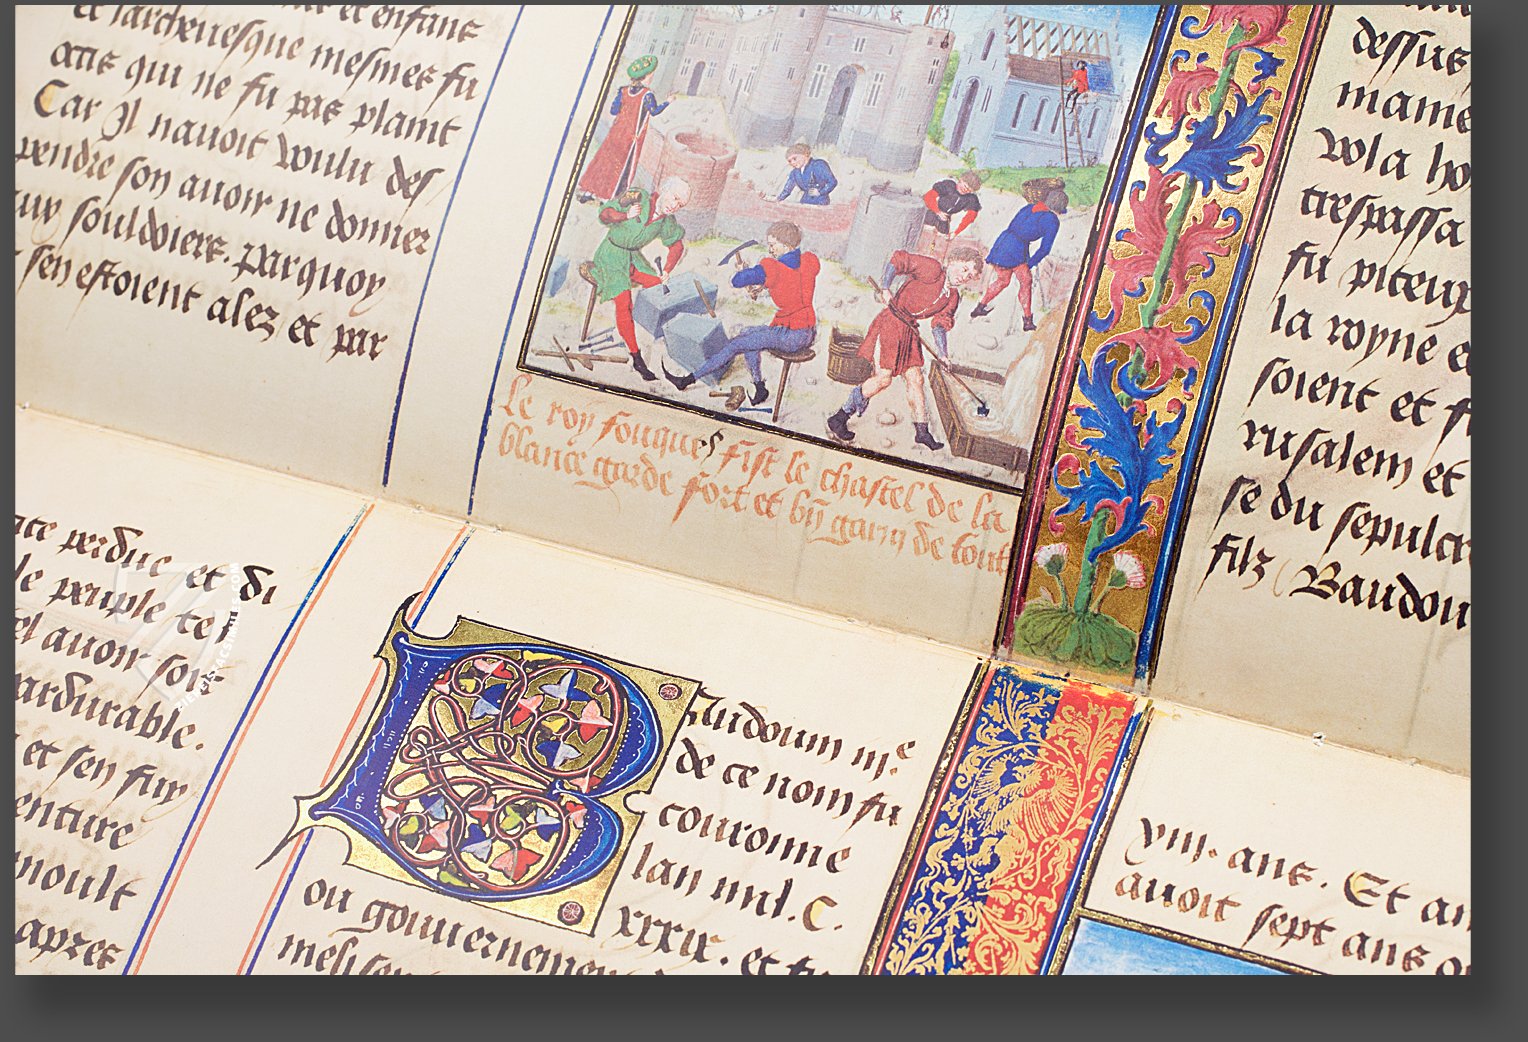 et larcheuesque mesmes fu
atis qui ne fu pas plaint
Car Il nauoit voulu des
pendre son auoir ne donner
souldoiers. parquoy
sen estoient alez et par
Le roy fouques fist le chastel de la
blance garde fort et bn̄ garny de tout
dessus
mame
vola ho
trespassa
fu piteux
la royne e
soient et f
rusalem et
se du sepulcr
filz Baudou
ate perdue et di
le peuple te
el auoir son
ardurable.
et sen fuy
enture
moult
apres
Baudouin m.e
de ce nom fu
couronne
lan mil. C.
xxxix. et
ou gouuernement
viii. ans. Et an
auoit sept ans